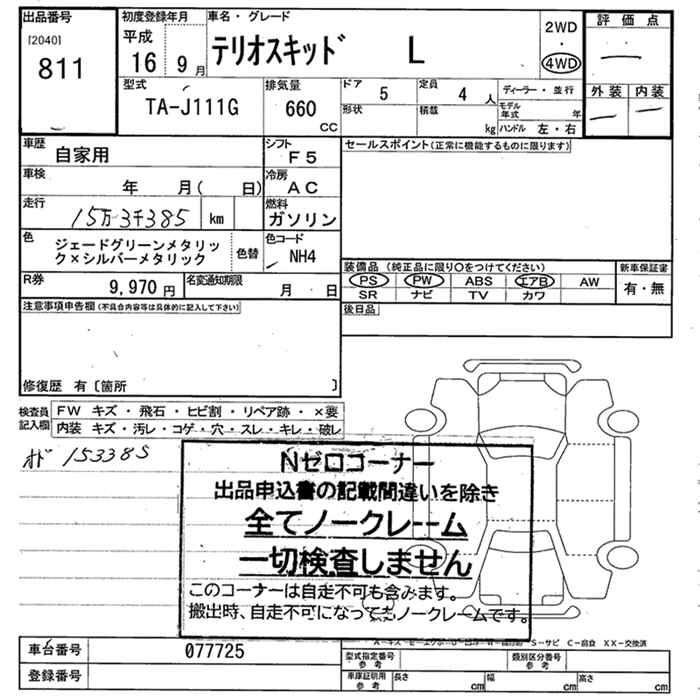 出品番号
[2040]
811
初度登録年月
平成
16 9月
車名・グレード
テリオスキッド L
2WD
・
4WD
評価点
―
外装 内装
― ―
型式
TA-J111G
排気量
660
CC
ドア 5
形状
定員 4 人
積載 kg
ディーラー・並行
モデル年式 年
ハンドル 左・右
車歴
自家用
シフト
F5
車検
年 月( 日)
冷房
AC
走行
15万3千385 km
燃料
ガソリン
色
ジェードグリーンメタリッ
ク×シルバーメタリック
色替
色コード
NH4
R券
9,970 円
名変通知期限
月 日
セールスポイント(正常に機能するものに限ります)
装備品 (純正品に限り○をつけてください)
PS PW ABS エアB AW
SR ナビ TV カワ
新車保証書
有・無
後日品
注意事項申告欄(不具合内容等は具体的に記入して下さい)
修復歴 有〔箇所 〕
検査員
記入欄
FW キズ・飛石・ヒビ割・リペア跡・×要
内装 キズ・汚レ・コゲ・穴・スレ・キレ・破レ
オド 153385
Nゼロコーナー
出品申込書の記載間違いを除き
全てノークレーム
一切検査しません
このコーナーは自走不可も含みます。
搬出時、自走不可になってもノークレームです。
S-サビ C-腐食 XX-交換済
車台番号
077725
登録番号
型式指定番号
参考
類別区分番号
参考
車庫証明用
参考
長さ cm
幅 cm
高さ cm